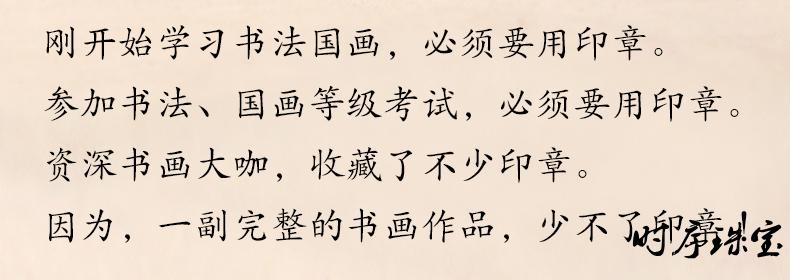 刚开始学习书法国画，必须要用印章。
参加书法、国画等级考试，必须要用印章。
资深书画大咖，收藏了不少印章。
因为，一副完整的书画作品，少不了印章！
时序珠宝